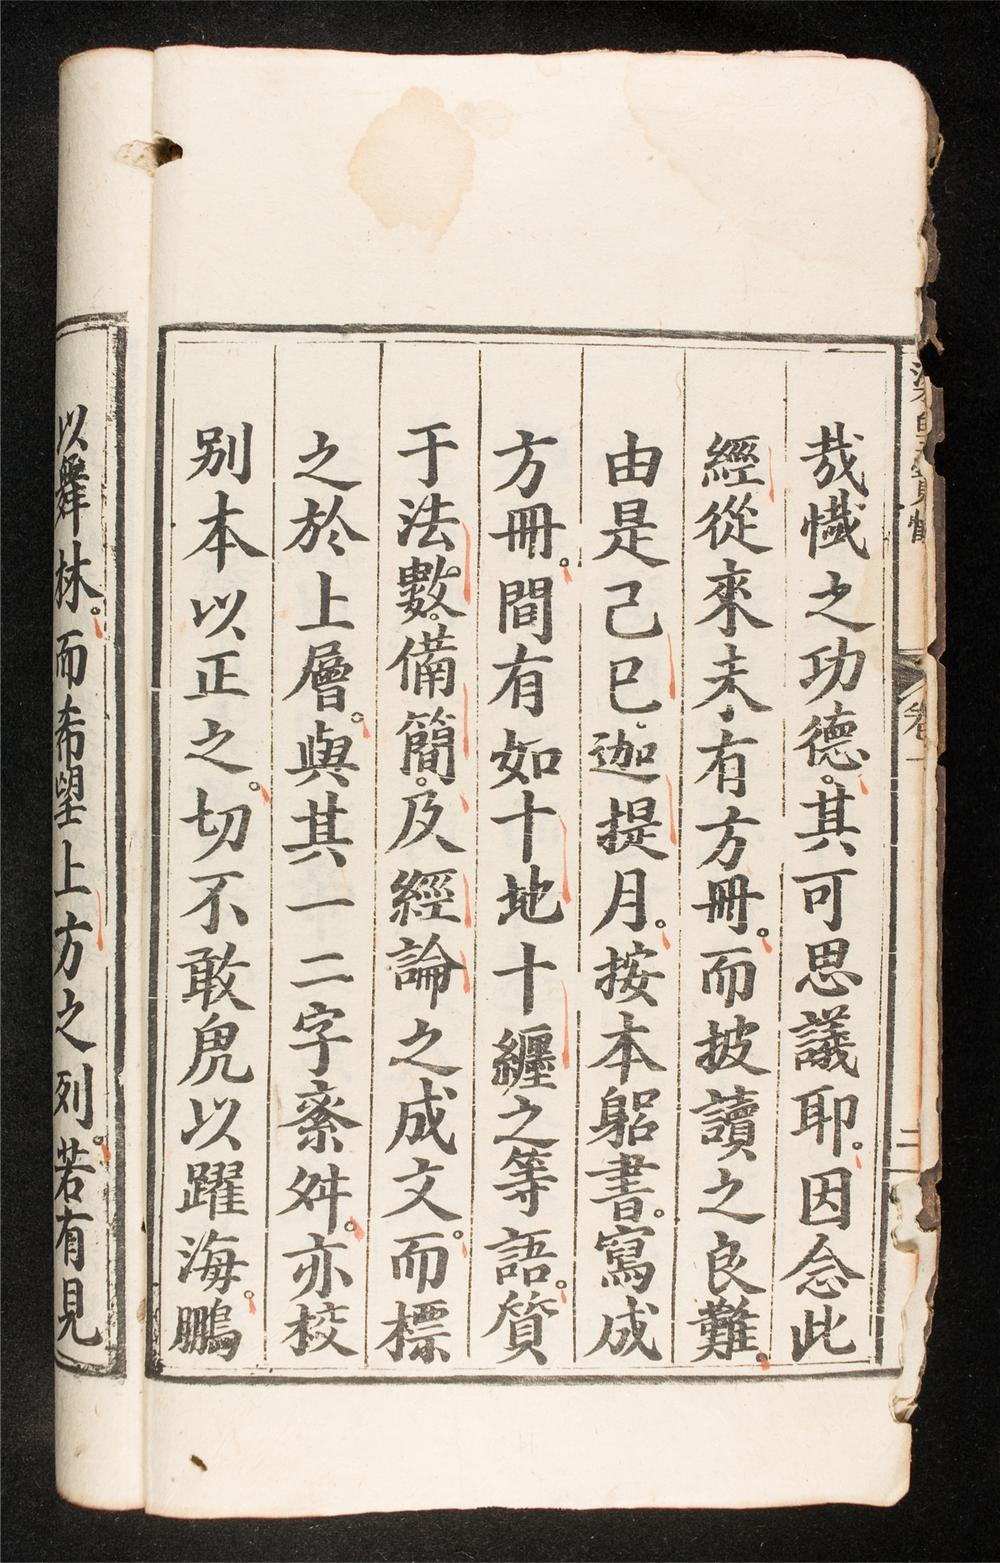 哉懴之功德。其可思議耶。因念此
經從來未有方冊。而披讀之良難。
由是己巳。迦提月。按本躬書。寫成
方冊。間有如十地十纏之等語。質
于法數。備簡。及經論之成文。而標
之於上層。與其一二字紊舛。亦校
別本以正之。切不敢鳧以躍海。鵬
以舞林。而希望上方之列。若有見
卷一
二